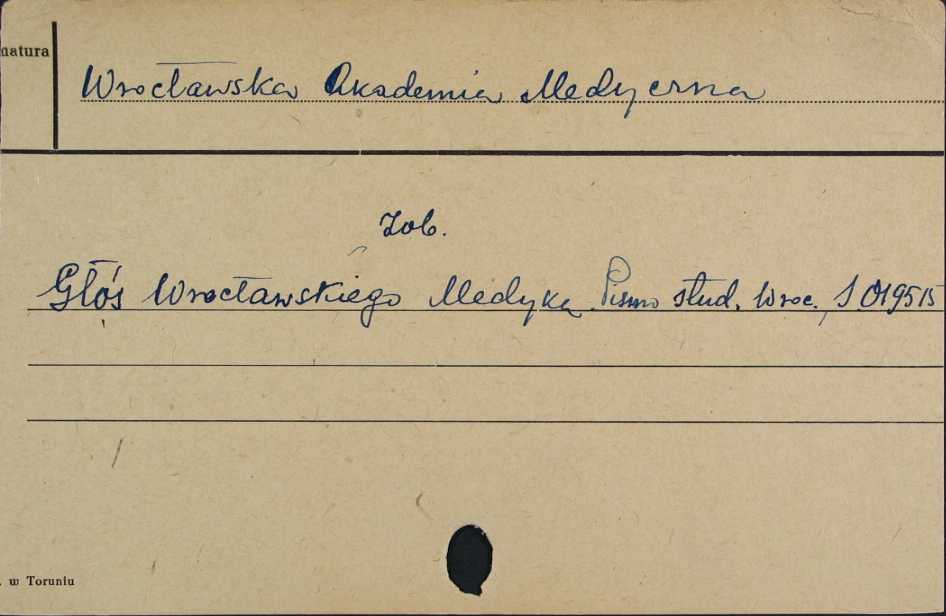 natura
Wrocławska Akademia Medyczna
Zob.
Głós Wrocławskiego Medyka. Pismo stud. Wroc.,
. w Toruniu